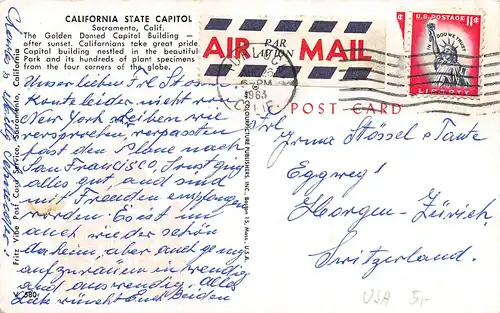 CALIFORNIA STATE CAPITOL
Sacramento, Calif.
The Golden Domed Capitol Building —
after sunset. Californians take great pride
Capitol building nestled in the beautiful
Park and its hundreds of plant specimens
from the four corners of the globe.
Unser lieben Frl Stossel
Konte leider nicht wie
New York schreiben wie
versprochen, verpassten
fast den Plane nach
San Francisco, Sonst ging
alles gut, and sind
mit Freuden empfangen
worden. Es ist im
auch wieder schön
daheim, aber auch genug
aufzuräumen inwendig
und auswendig. Alles
Gute wünscht Euch Beiden
V 580
Fritz Vibe Post Card Service, Sacramento, California
COLOURPICTURE PUBLISHERS, INC., Boston 15, Mass., U.S.A.
PAR
AVION
AIR MAIL
PM
1963
CALIF
U.S. POSTAGE 11¢
IN GOD WE TRUST
LIBERTY
POST CARD
Frl
Irma Stossel & Tante
Eggweg!
Horgen-Zürich
Switzerland.
USA 5,-